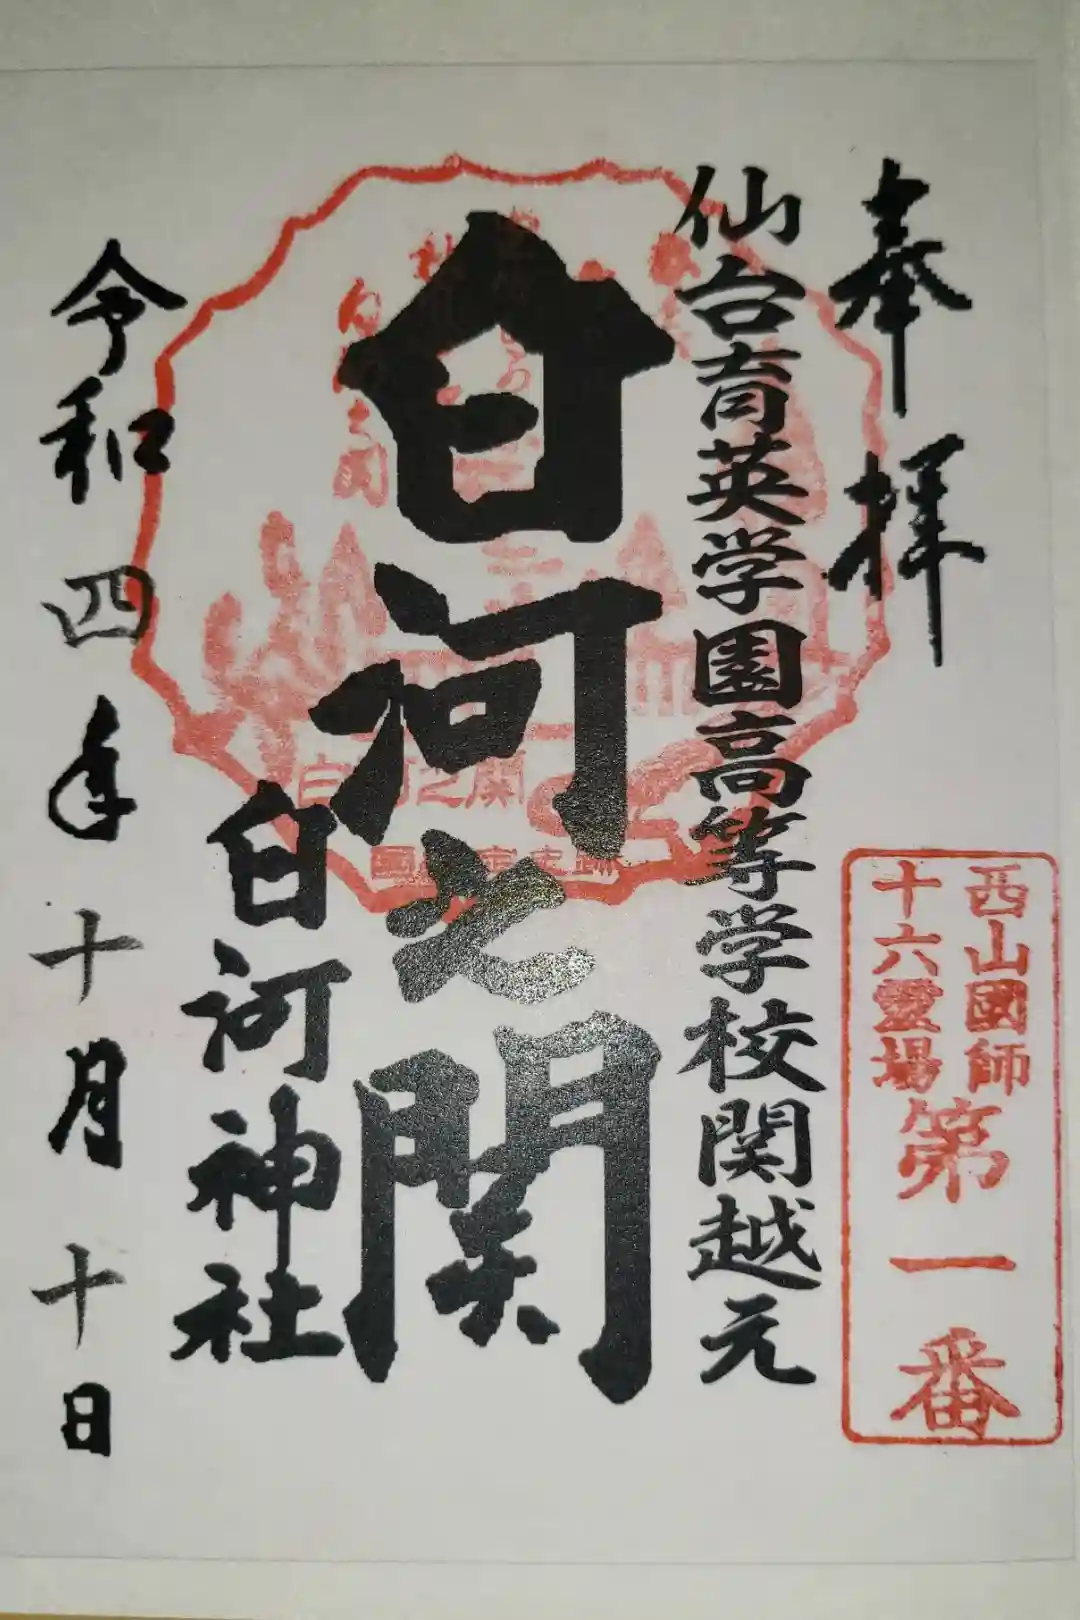 奉拝
西山國師
十六霊場
第一番
仙台育英学園高等学校関越元
白河之関
白河之関
白河神社
令和四年十月十日